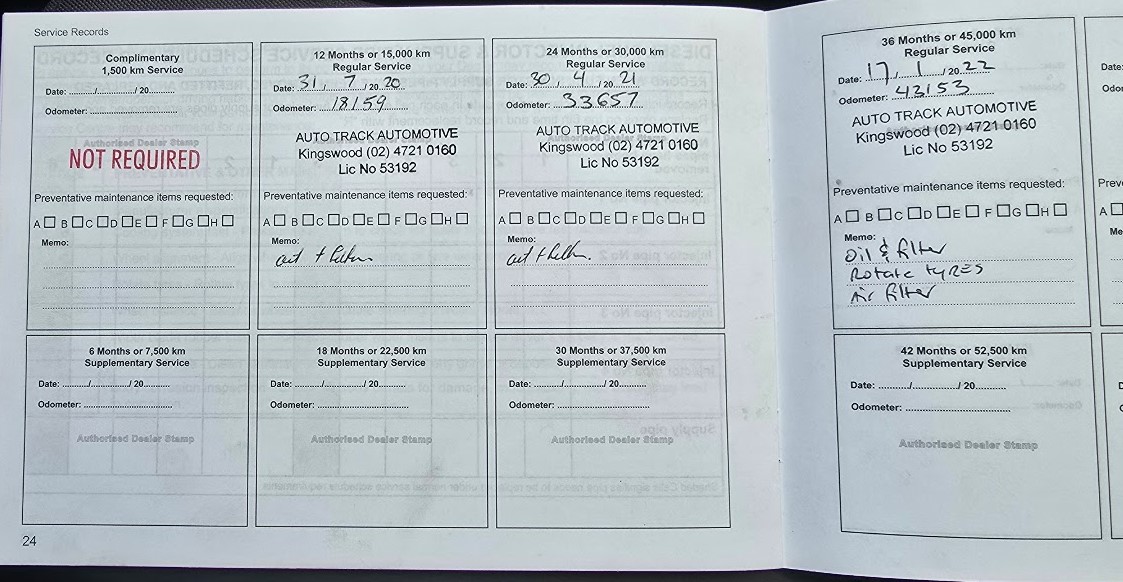 Service Records
Complimentary
1,500 km Service
Date: ........../............/ 20.........
Odometer: ..............................
Authorised Dealer Stamp
NOT REQUIRED
Preventative maintenance items requested:
A B C D E F G H
Memo:
12 Months or 15,000 km
Regular Service
Date: 31 / 7 / 20 20
Odometer: 18159
AUTO TRACK AUTOMOTIVE
Kingswood (02) 4721 0160
Lic No 53192
Preventative maintenance items requested:
A B C D E F G H
Memo:
24 Months or 30,000 km
Regular Service
Date: 30 / 4 / 20 21
Odometer: 33657
AUTO TRACK AUTOMOTIVE
Kingswood (02) 4721 0160
Lic No 53192
Preventative maintenance items requested:
A B C D E F G H
Memo:
36 Months or 45,000 km
Regular Service
Date: 17 / 1 / 20 22
Odometer: 43153
AUTO TRACK AUTOMOTIVE
Kingswood (02) 4721 0160
Lic No 53192
Preventative maintenance items requested:
A B C D E F G H
Memo:
Oil & filter
Rotate tyres
Air filter
6 Months or 7,500 km
Supplementary Service
Date: ........../............/ 20.........
Odometer: ..............................
Authorised Dealer Stamp
18 Months or 22,500 km
Supplementary Service
Date: ........../............/ 20.........
Odometer: ..............................
Authorised Dealer Stamp
30 Months or 37,500 km
Supplementary Service
Date: ........../............/ 20.........
Odometer: ..............................
Authorised Dealer Stamp
42 Months or 52,500 km
Supplementary Service
Date: ........../............/ 20.........
Odometer: ..............................
Authorised Dealer Stamp
24